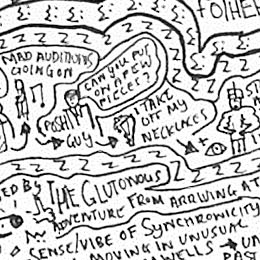 FOTHE
MAD AUDITIONS
GOING ON
CAN YOU PUT
ON A FEW
PIECES?
POSH
GUY
TAKE
OFF MY
NECKLACES
ST
ED BY THE GLUTONOUS
ADVENTURE FROM ARRIVING AT
SENSE/VIBE OF SYNCHRONICITY
MOVING IN UNUSUAL
WELLS → UN
PAST